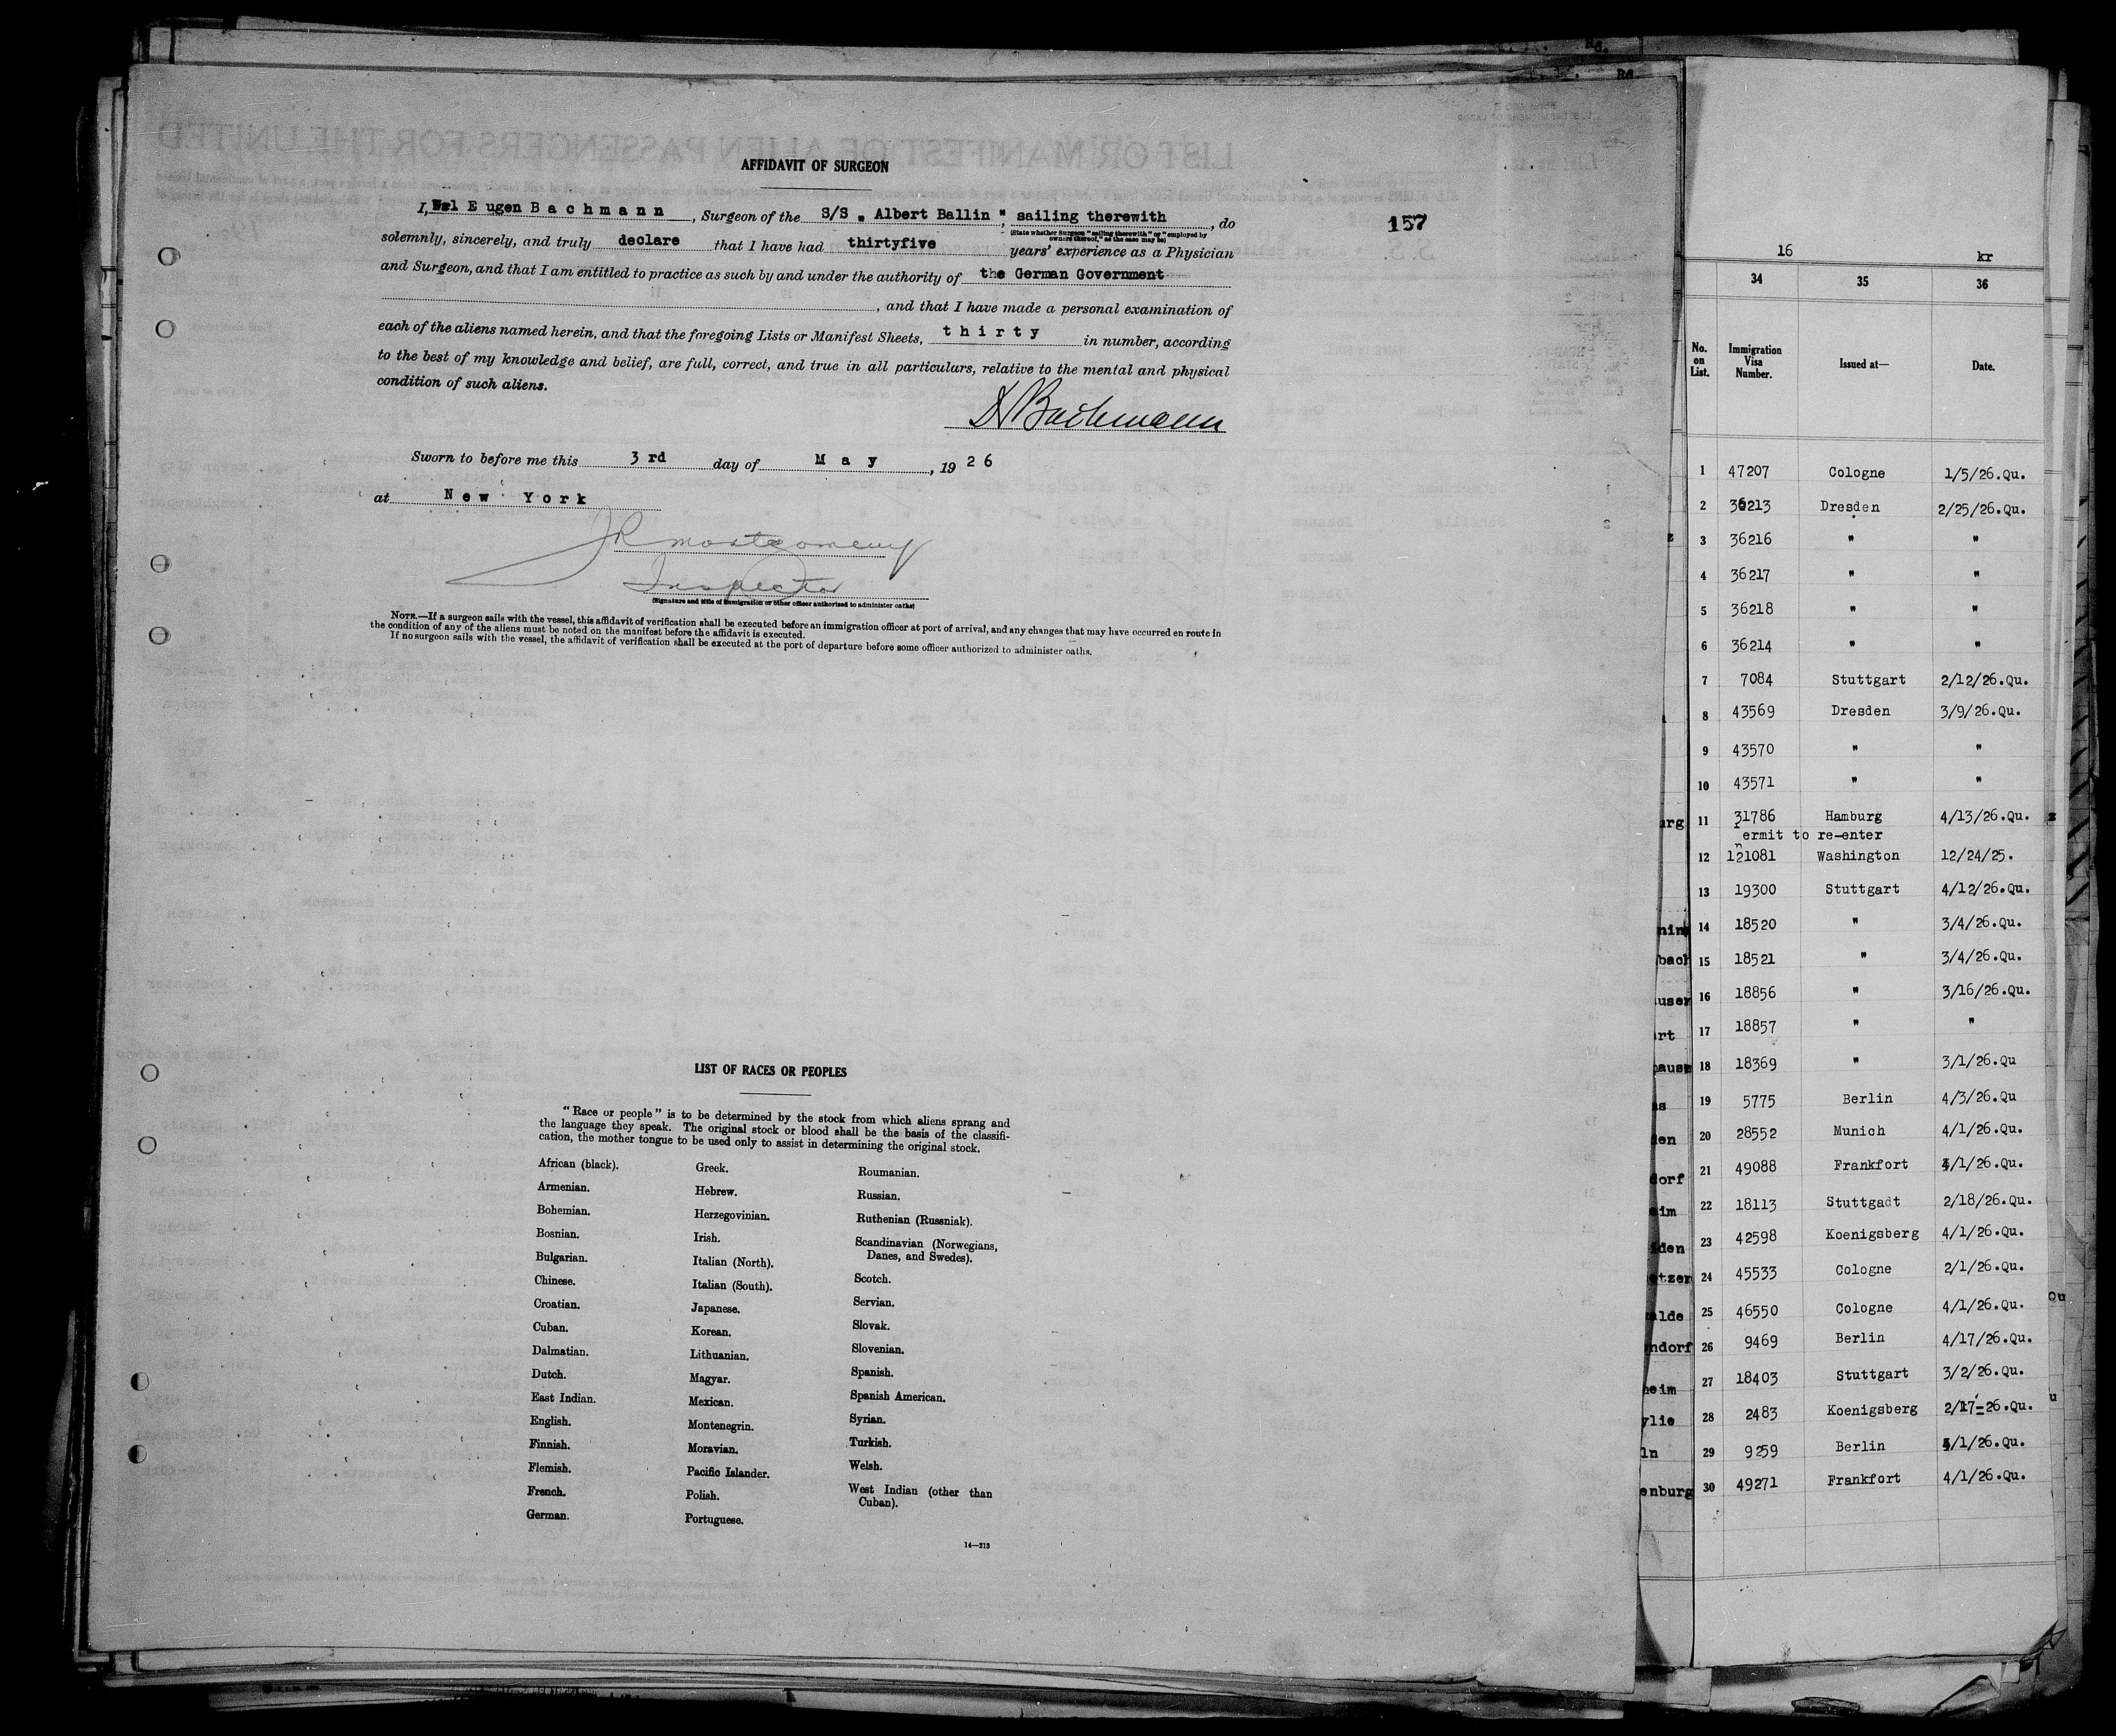 AFFIDAVIT OF SURGEON
I, Eugen Bachmann, Surgeon of the S/S „ Albert Ballin " , sailing therewith, do
(State whether Surgeon "sailing therewith" or "employed by owners thereof," as the case may be)
solemnly, sincerely, and truly declare that I have had thirtyfive years' experience as a Physician
and Surgeon, and that I am entitled to practice as such by and under the authority of the German Government
, and that I have made a personal examination of
each of the aliens named herein, and that the foregoing Lists or Manifest Sheets, thirty in number, according
to the best of my knowledge and belief, are full, correct, and true in all particulars, relative to the mental and physical
condition of such aliens.
Bachmann
Sworn to before me this 3 rd day of May, 1926
at New York
JR Montgomery
Inspector
(Signature and title of immigration or other officer authorized to administer oaths)
NOTE.—If a surgeon sails with the vessel, this affidavit of verification shall be executed before an immigration officer at port of arrival, and any changes that may have occurred en route in
the condition of any of the aliens must be noted on the manifest before the affidavit is executed.
If no surgeon sails with the vessel, the affidavit of verification shall be executed at the port of departure before some officer authorized to administer oaths.
157
LIST OF RACES OR PEOPLES
"Race or people" is to be determined by the stock from which aliens sprang and
the language they speak. The original stock or blood shall be the basis of the classifi-
cation, the mother tongue to be used only to assist in determining the original stock.
African (black).
Armenian.
Bohemian.
Bosnian.
Bulgarian.
Chinese.
Croatian.
Cuban.
Dalmatian.
Dutch.
East Indian.
English.
Finnish.
Flemish.
French.
German.
Greek.
Hebrew.
Herzegovinian.
Irish.
Italian (North).
Italian (South).
Japanese.
Korean.
Lithuanian.
Magyar.
Mexican.
Montenegrin.
Moravian.
Pacific Islander.
Polish.
Portuguese.
Roumanian.
Russian.
Ruthenian (Russniak).
Scandinavian (Norwegians,
Danes, and Swedes).
Scotch.
Servian.
Slovak.
Slovenian.
Spanish.
Spanish American.
Syrian.
Turkish.
Welsh.
West Indian (other than
Cuban).
14—213
16 kr
34 35 36
No. on List. Immigration Visa Number. Issued at— Date.
1 47207 Cologne 1/5/26.Qu.
2 36213 Dresden 2/25/26.Qu.
3 36216 " "
4 36217 " "
5 36218 " "
6 36214 " "
7 7084 Stuttgart 2/12/26.Qu.
8 43569 Dresden 3/9/26.Qu.
9 43570 " "
10 43571 " "
11 31786 Hamburg 4/13/26.Qu.
ermit to re-enter
12 121081 Washington 12/24/25.
13 19300 Stuttgart 4/12/26.Qu.
14 18520 " 3/4/26.Qu.
15 18521 " 3/4/26.Qu.
16 18856 " 3/16/26.Qu.
17 18857 " "
18 18369 " 3/1/26.Qu
19 5775 Berlin 4/3/26.Qu
20 28552 Munich 4/1/26.Qu.
21 49088 Frankfort /1/26.Qu.
22 18113 Stuttgadt 2/18/26.Qu.
23 42598 Koenigsberg 4/1/26.Qu.
24 45533 Cologne 2/1/26.Qu.
25 46550 Cologne 4/1/26.Qu.
26 9469 Berlin 4/17/26.Qu.
27 18403 Stuttgart 3/2/26.Qu.
28 2483 Koenigsberg 2/17-26.Qu.
29 9259 Berlin /1/26.Qu.
30 49271 Frankfort 4/1/26.Qu.